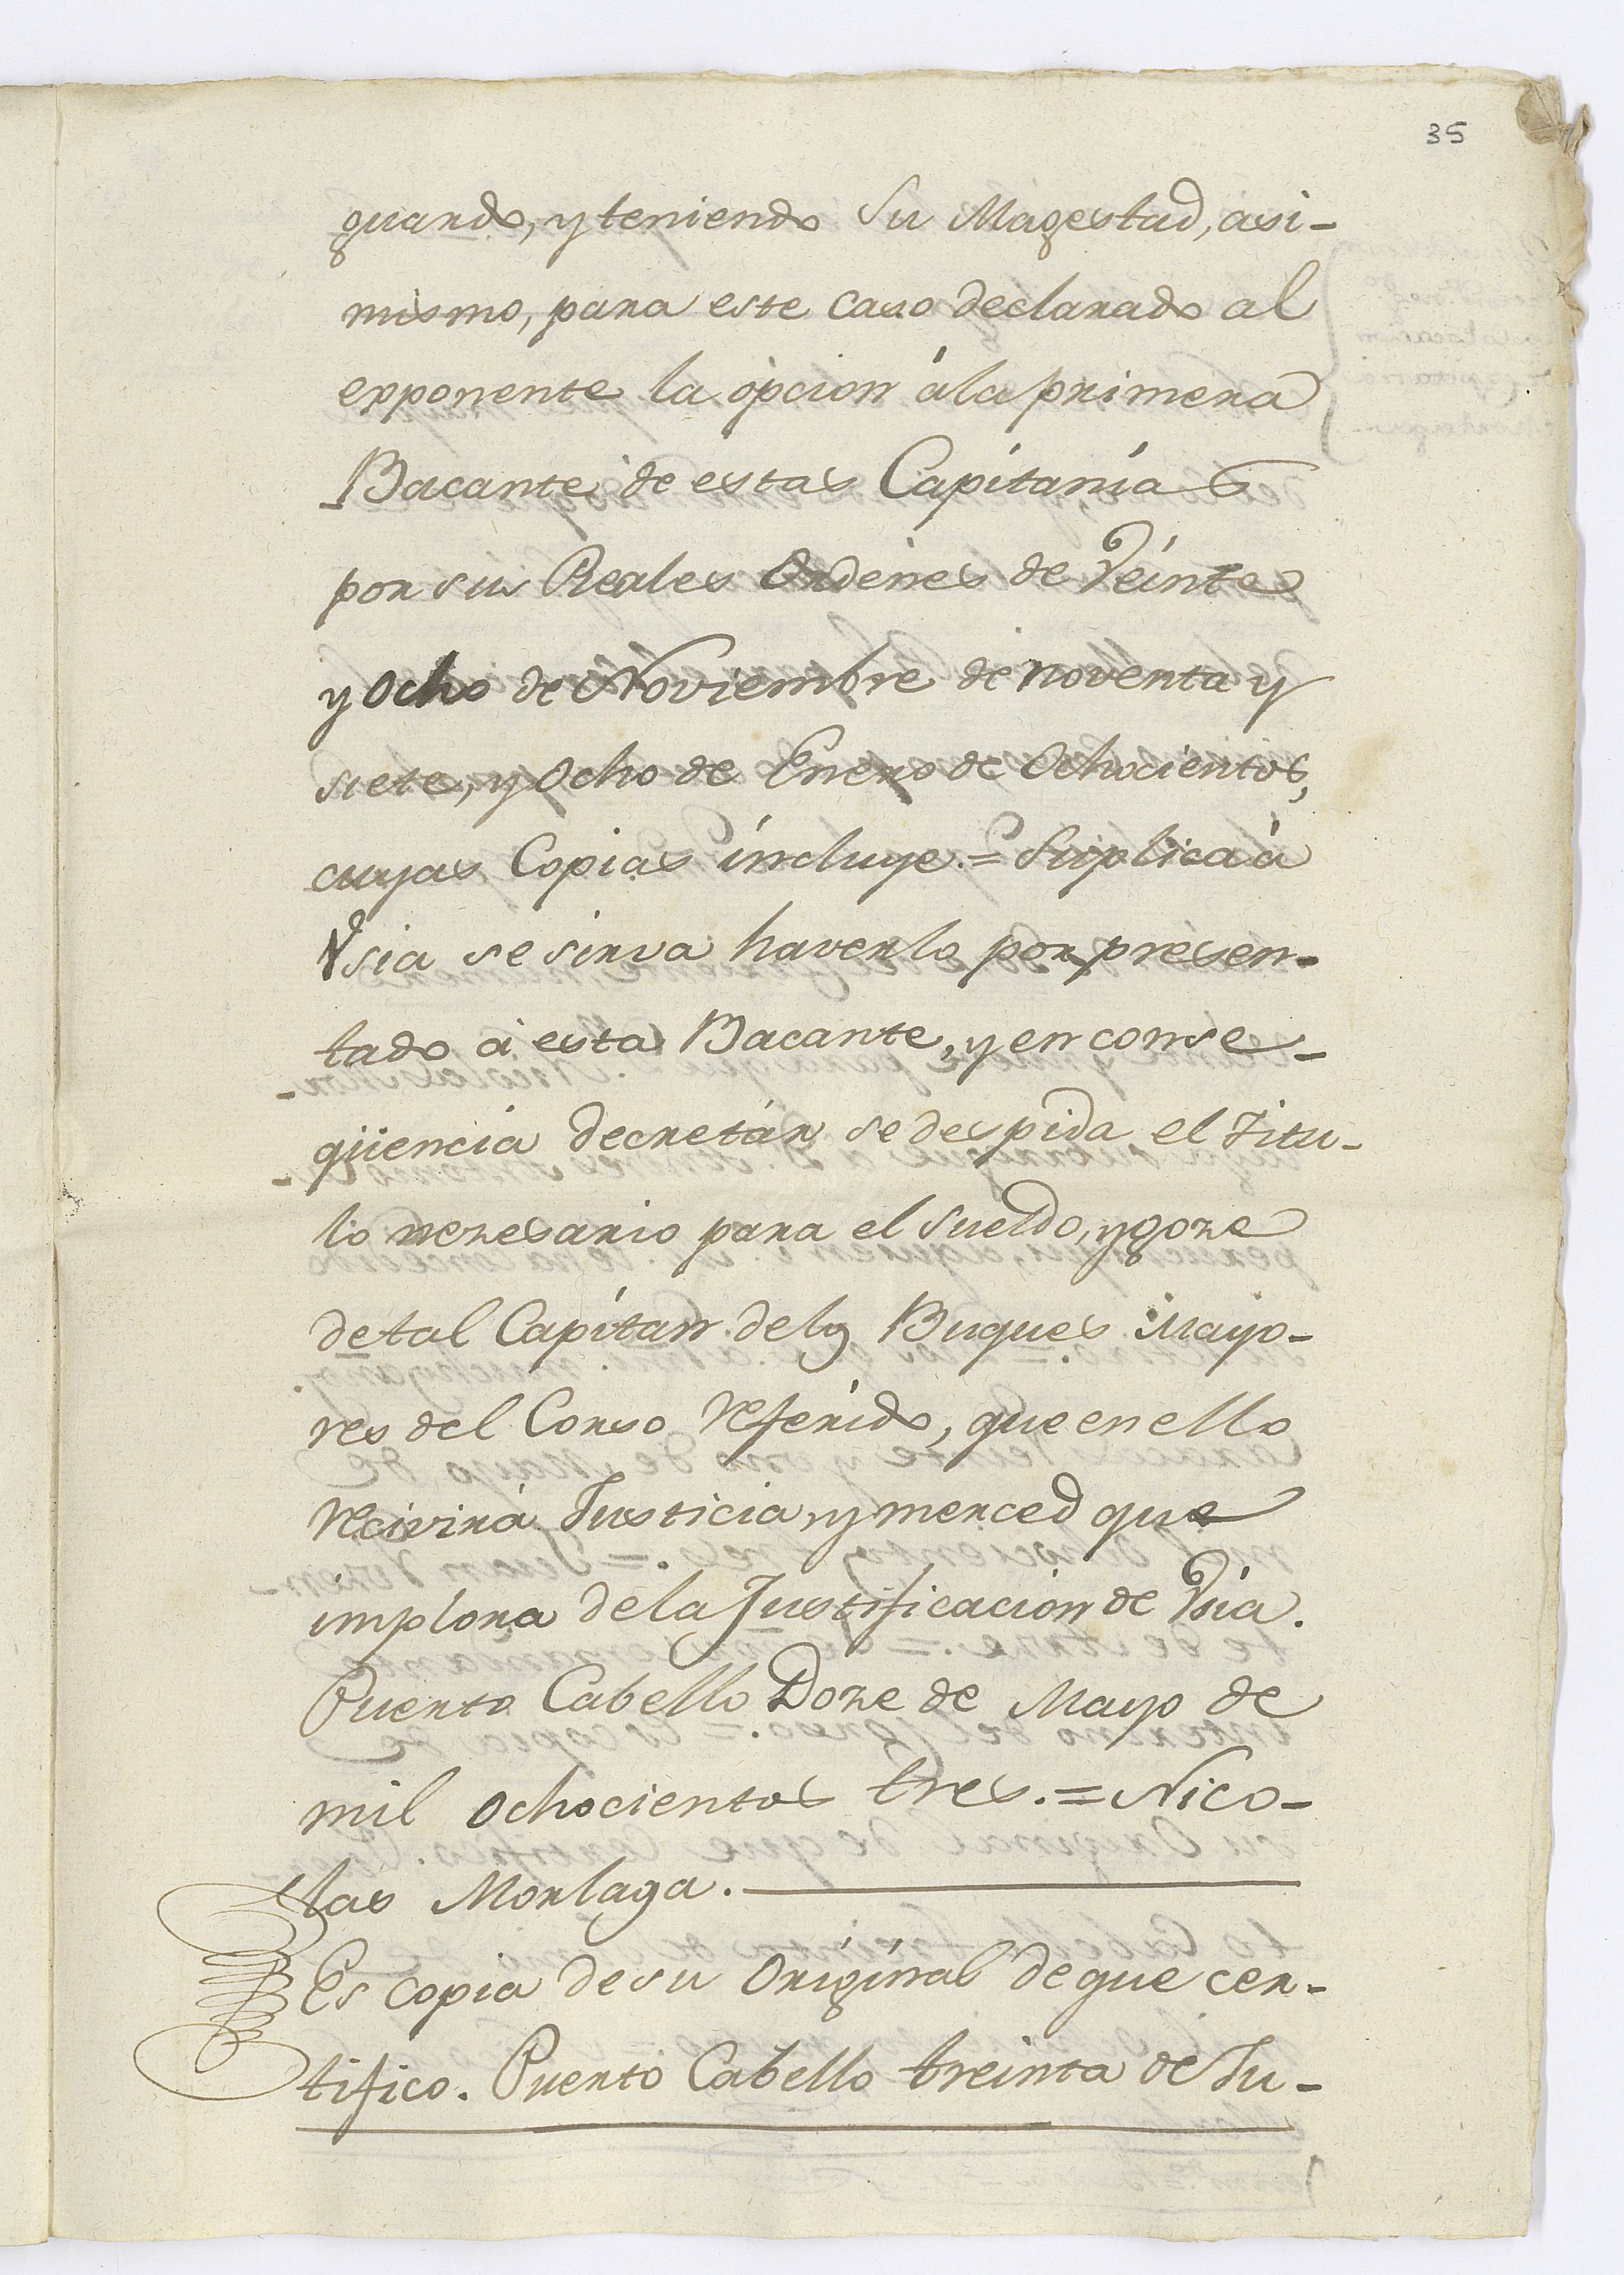 35
guardo, y teniendo Su Magestad, asi-
mismo, para este caso declarado al
exponente la opcion á la primera
Bacante de estas Capitanías
por sus Reales Ordenes de Veinte
y ocho de Noviembre de noventa y
siete, y ocho de Enero de Ochocientos,
cuyas Copias incluye. = Suplica á
Vsia se sirva haverlo por presen-
tado á esta Bacante, y en conse-
qüencia decretár se despida el Titu-
lo nezesario para el Sueldo, y goze
de tal Capitan de los Buques Mayo-
res del Corso referido, que en ello
recivirá Justicia, y merced que
implora de la Justificacion de Vsia.
Puerto Cabello Doze de Mayo de
mil ochocientos tres. = Nico-
las Monlaga.
Es copia de su Original de que cer-
tifico. Puerto Cabello treinta de Ju-